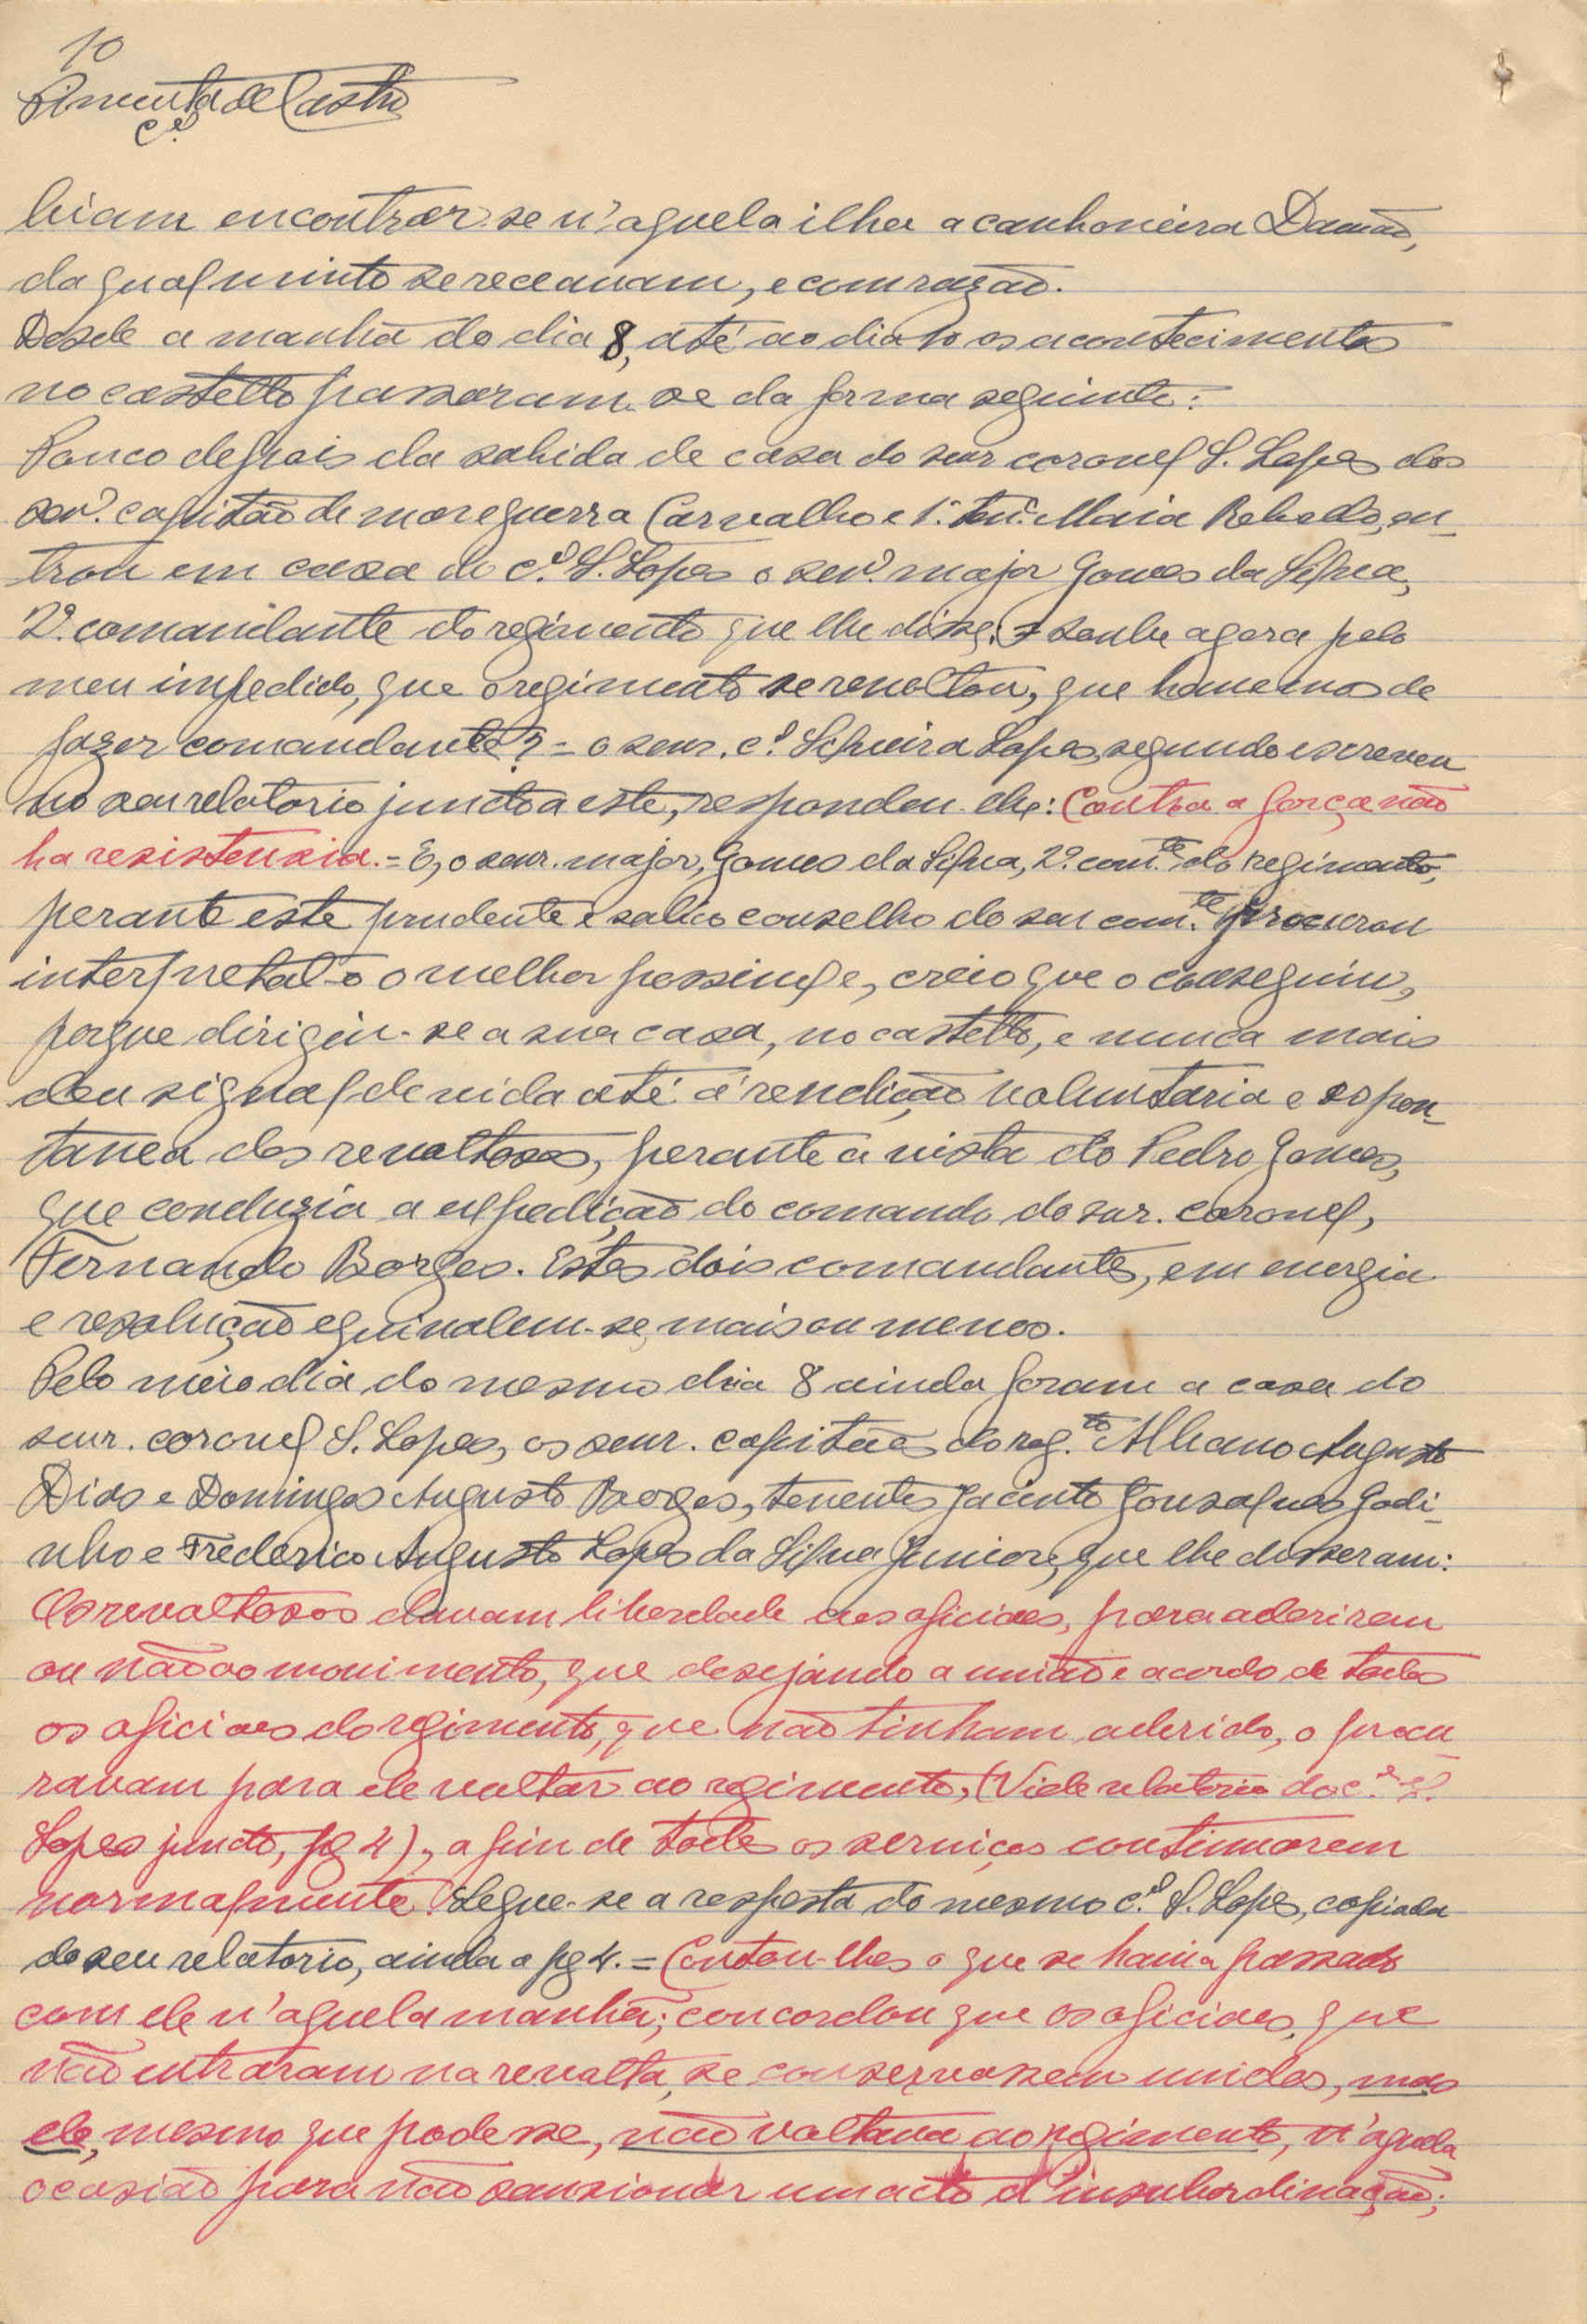 10
Pimenta de Castro
c.el
biam encontrar-se n'aquela ilha a canhoneira Damão,
da qual muito se receavam, e com razão.
Desde a manhã do dia 8, até ao dia 10 os acontecimentos
no castello passaram-se da forma seguinte:
Pouco depois da sahida de casa do snr coronel S. Lopes dos
snr.s capitão de mar e guerra Carvalho e 1.º ten.e Maia Rebello, en-
trou em casa do c.el S. Lopes o snr. major Gomes da Silva,
2.º comandante do regimento que lhe disse: = soube agora pelo
meu impedido, que o regimento se revoltou, que havemos de
fazer comandante? = o snr. c.el Silveira Lopes, segundo escreveu
no seu relatorio juncto a este, respondeu-lhe: Contra a força não
ha resistensia. = E, o snr. major, Gomes da Silva, 2.º com.te do regimento,
perante este prudente e sabio conselho do seu com.te procurou
interpretal-o o melhor possivel e, creio que o conseguiu,
porque dirigiu-se a sua casa, no castello, e nunca mais
deu signal de vida até á rendição voluntaria e espon-
tanea dos revoltosos, perante a vista do Pedro Gomes,
que conduzia a expedição do comando do snr. coronel,
Fernando Borges. Estes dois comandantes, em energia
e resolução equivalem-se, mais ou menos.
Pelo meio dia do mesmo dia 8 ainda foram a casa do
snr. coronel S. Lopes, os snr. capitães do reg.to Albano Augusto
Dias e Domingos Augusto Borges, tenentes Jacinto Gonsalves Godi-
nho e Frederico Augusto Lopes da Silva Junior, que lhe disseram:
Os revoltosos davam liberdade aos oficiaes, para aderirem
ou não ao movimento, que desejando a união e acordo de todos
os oficiaes do regimento, que não tinham aderido, o procu-
ravam para ele voltar ao regimento, (Vide relatorio do c.el S.
Lopes juncto, pg 4), a fim de todos os serviços continuarem
normalmente. Segue-se a resposta do mesmo c.el S. Lopes, copiada
do seu relatorio, ainda a pg 4. = Contou-lhes o que se havia passado
com ele n'aquela manhã; concordou que os oficiaes, que
não entraram na revolta, se conservassem unidos, mas
ele, mesmo que podesse, não voltava ao regimento, n'aquela
ocasião para não sansionar um acto d'insubordinação;